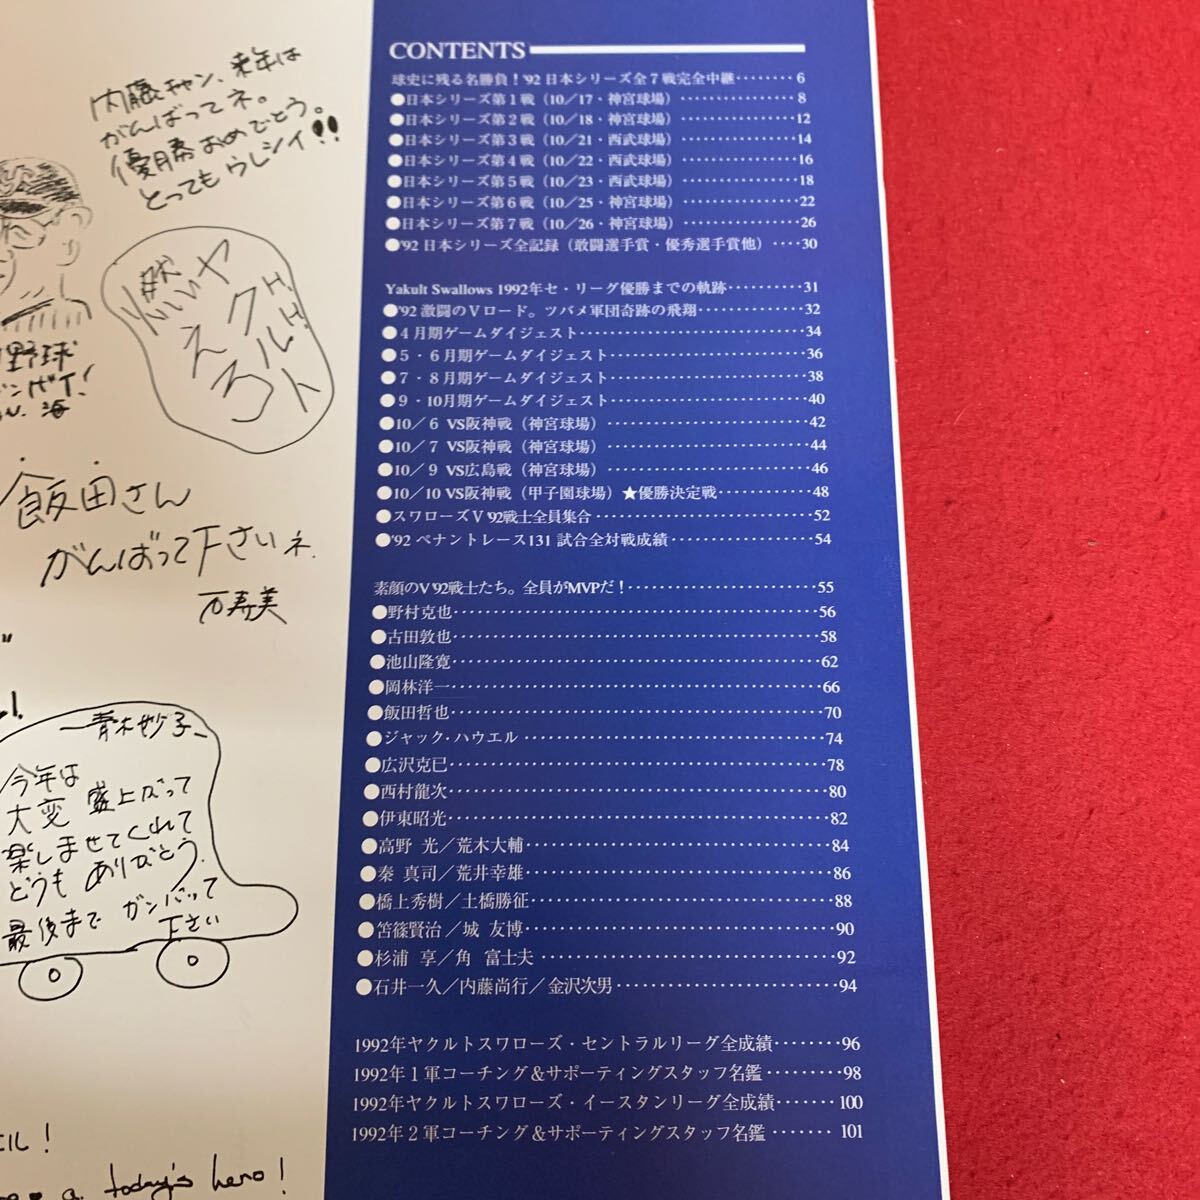 内藤チャン、来年は
がんばってネ。
優勝おめでとう。
とってもウレシイ!!
燃えろ
いいぞ
ヤクルト
野球
飯田さん
がんばって下さいネ.
万寿美
青木妙子
今年は
大変 盛上がって
楽しませてくれて
どうも ありがとう.
最後まで ガンバッて
下さい
エル!
a today's hero!
CONTENTS
球史に残る名勝負!'92 日本シリーズ全7戦完全中継………6
●日本シリーズ第1戦(10/17・神宮球場)………………8
●日本シリーズ第2戦(10/18・神宮球場)………………12
●日本シリーズ第3戦(10/21・西武球場)………………14
●日本シリーズ第4戦(10/22・西武球場)………………16
●日本シリーズ第5戦(10/23・西武球場)………………18
●日本シリーズ第6戦(10/25・神宮球場)………………22
●日本シリーズ第7戦(10/26・神宮球場)………………26
●'92 日本シリーズ全記録(敢闘選手賞・優秀選手賞他)…30
Yakult Swallows 1992年セ・リーグ優勝までの軌跡…………31
●'92 激闘のVロード。ツバメ軍団奇跡の飛翔……………32
●4月期ゲームダイジェスト…………………………34
●5・6月期ゲームダイジェスト………………………36
●7・8月期ゲームダイジェスト………………………38
●9・10月期ゲームダイジェスト………………………40
●10/6 VS阪神戦(神宮球場)………………………42
●10/7 VS阪神戦(神宮球場)………………………44
●10/9 VS広島戦(神宮球場)………………………46
●10/10 VS阪神戦(甲子園球場)★優勝決定戦…………48
●スワローズV'92戦士全員集合………………………52
●'92 ペナントレース131試合全対戦成績………………54
素顔のV'92戦士たち。全員がMVPだ!………………………55
●野村克也……………………………………56
●古田敦也……………………………………58
●池山隆寛……………………………………62
●岡林洋一……………………………………66
●飯田哲也……………………………………70
●ジャック・ハウエル………………………………74
●広沢克己……………………………………78
●西村龍次……………………………………80
●伊東昭光……………………………………82
●高野 光/荒木大輔………………………………84
●秦 真司/荒井幸雄………………………………86
●橋上秀樹/土橋勝征………………………………88
●笘篠賢治/城 友博………………………………90
●杉浦 享/角 富士夫………………………………92
●石井一久/内藤尚行/金沢次男………………………94
1992年ヤクルトスワローズ・セントラルリーグ全成績………96
1992年1軍コーチング&サポーティングスタッフ名鑑………98
1992年ヤクルトスワローズ・イースタンリーグ全成績……100
1992年2軍コーチング&サポーティングスタッフ名鑑……101